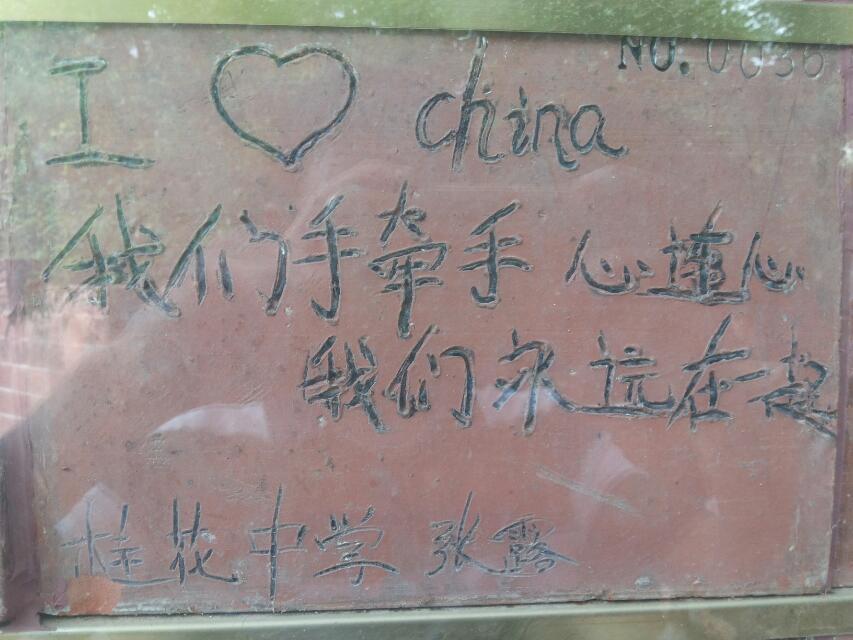 NO. 0036
I ♡ china
我们手牵手 心连心
我们永远在一起
桂花中学 张露